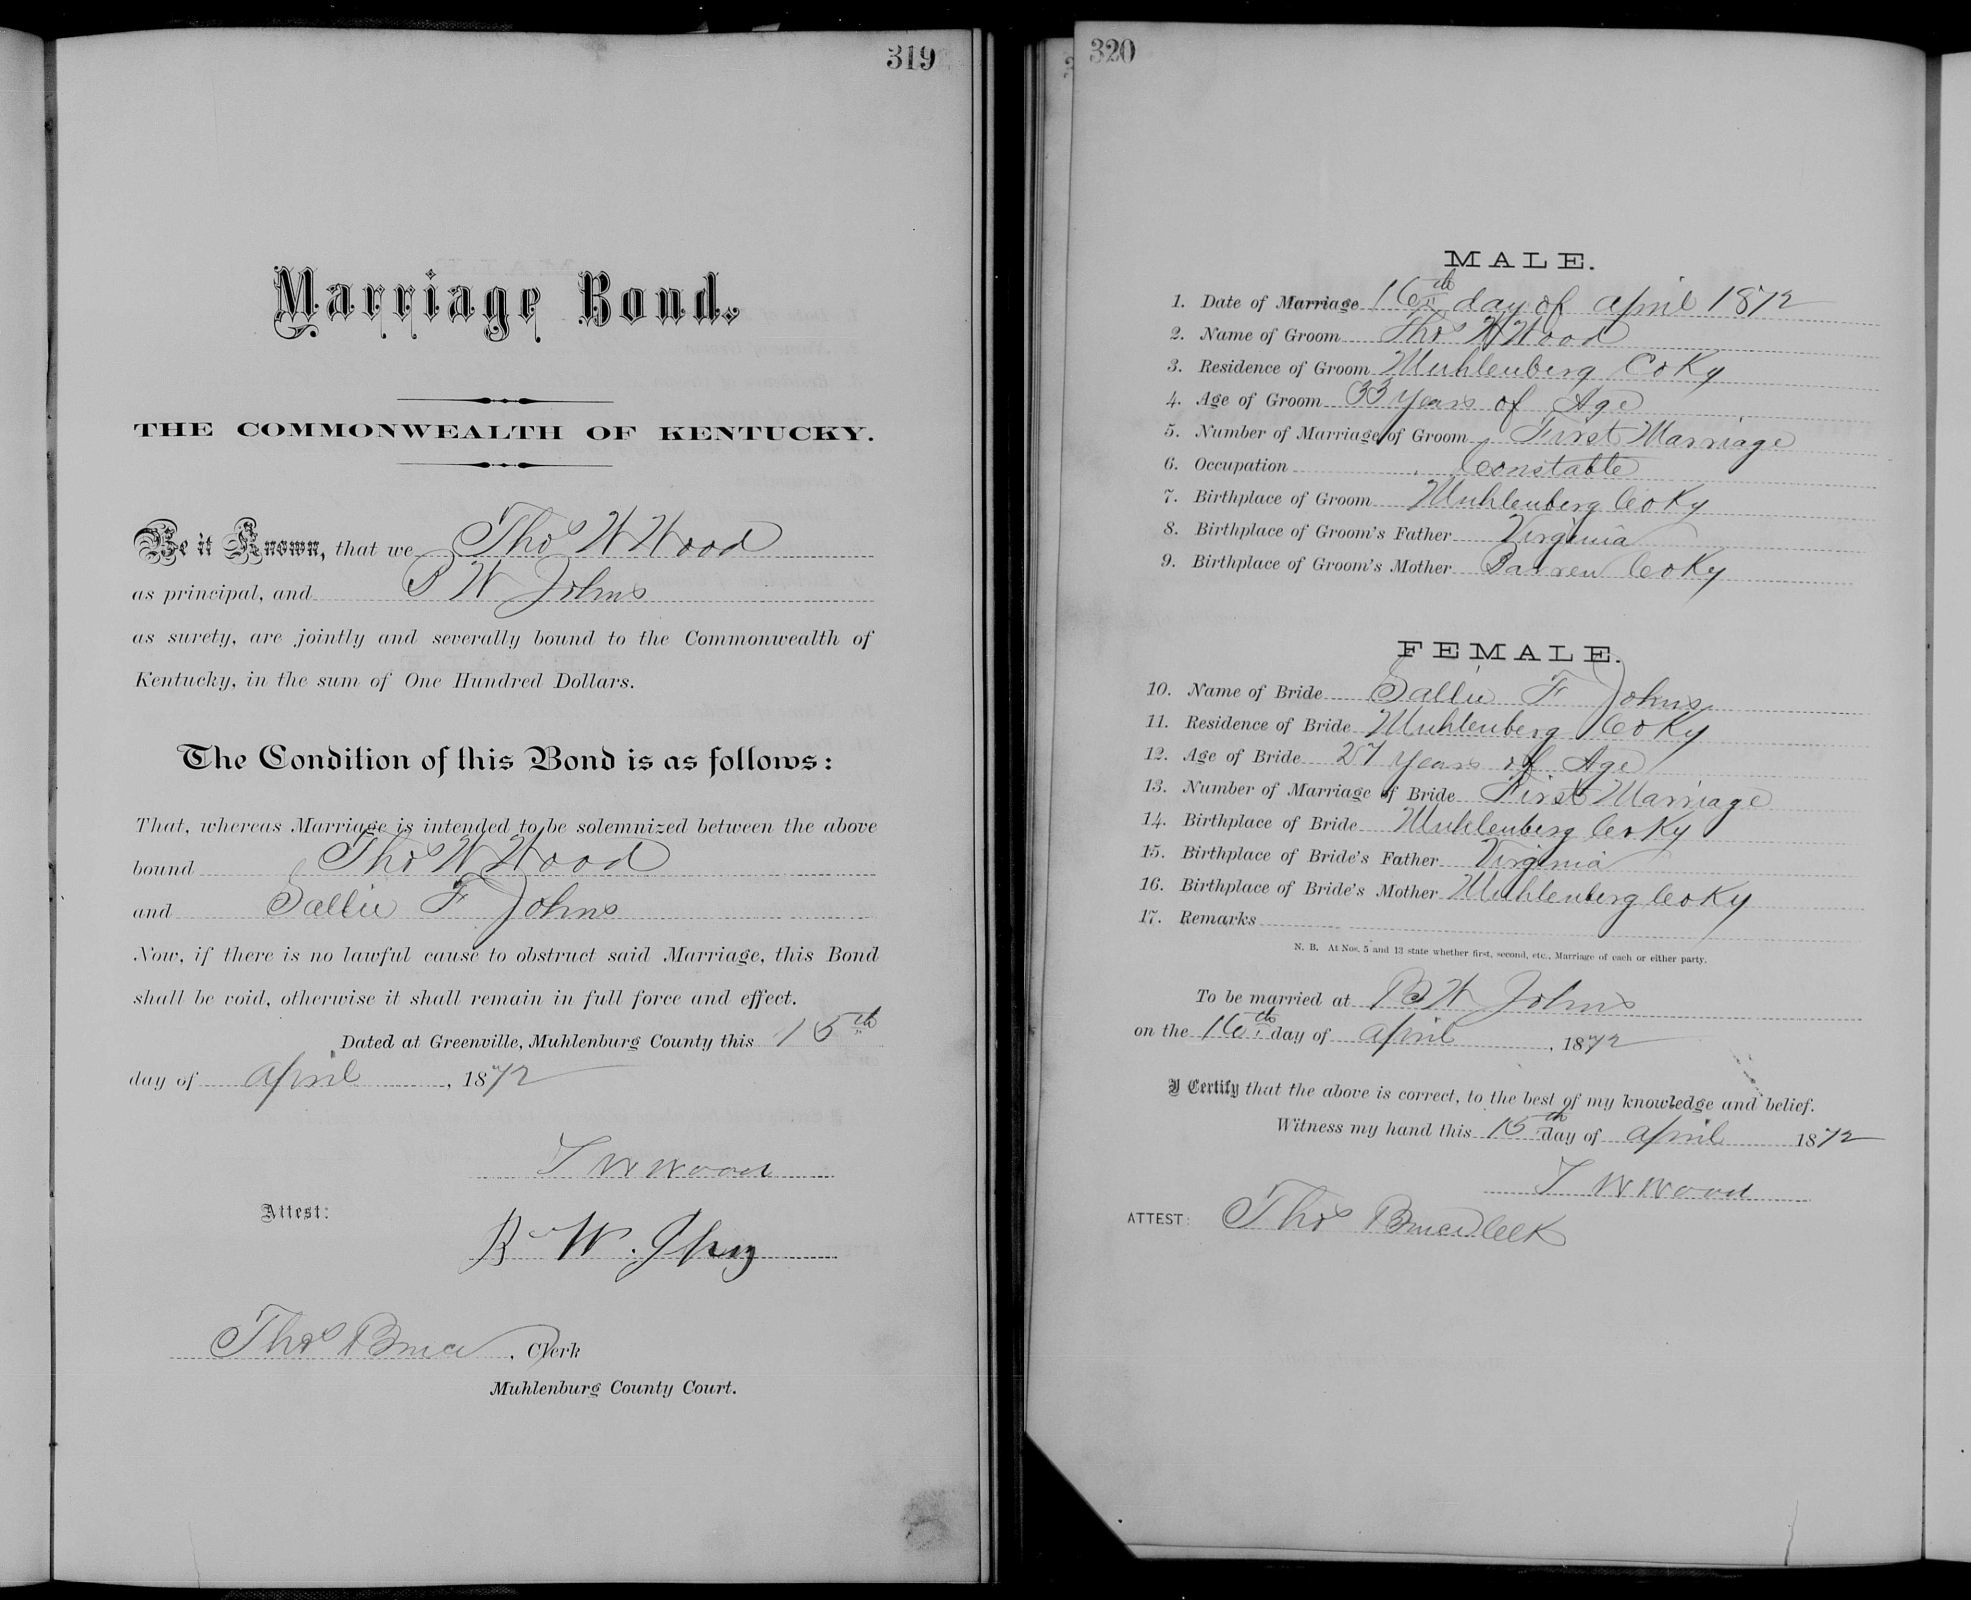 319
Marriage Bond.
THE COMMONWEALTH OF KENTUCKY.
Be it Known, that we Thos W Wood
as principal, and B W Johns
as surety, are jointly and severally bound to the Commonwealth of
Kentucky, in the sum of One Hundred Dollars.
The Condition of this Bond is as follows:
That, whereas Marriage is intended to be solemnized between the above
bound Thos W Wood
and Sallie F Johns
Now, if there is no lawful cause to obstruct said Marriage, this Bond
shall be void, otherwise it shall remain in full force and effect.
Dated at Greenville, Muhlenburg County this 15th
day of April, 1872
T W Wood
Attest:
B W. Johns
Thos Bruce, Clerk
Muhlenburg County Court.
320
MALE.
1. Date of Marriage 16th day of April 1872
2. Name of Groom Thos W Wood
3. Residence of Groom Muhlenberg Co Ky
4. Age of Groom 33 years of Age
5. Number of Marriage of Groom First Marriage
6. Occupation Constable
7. Birthplace of Groom Muhlenberg Co Ky
8. Birthplace of Groom's Father Virginia
9. Birthplace of Groom's Mother Barren Co Ky
FEMALE.
10. Name of Bride Sallie F Johns
11. Residence of Bride Muhlenberg Co Ky
12. Age of Bride 27 years of Age
13. Number of Marriage of Bride First Marriage
14. Birthplace of Bride Muhlenberg Co Ky
15. Birthplace of Bride's Father Virginia
16. Birthplace of Bride's Mother Muhlenberg Co Ky
17. Remarks
N. B. At Nos. 5 and 13 state whether first, second, etc., Marriage of each or either party.
To be married at B W Johns
on the 16th day of April, 1872
I Certify that the above is correct, to the best of my knowledge and belief.
Witness my hand this 15th day of April 1872
T W Wood
ATTEST: Thos Bruce Clk